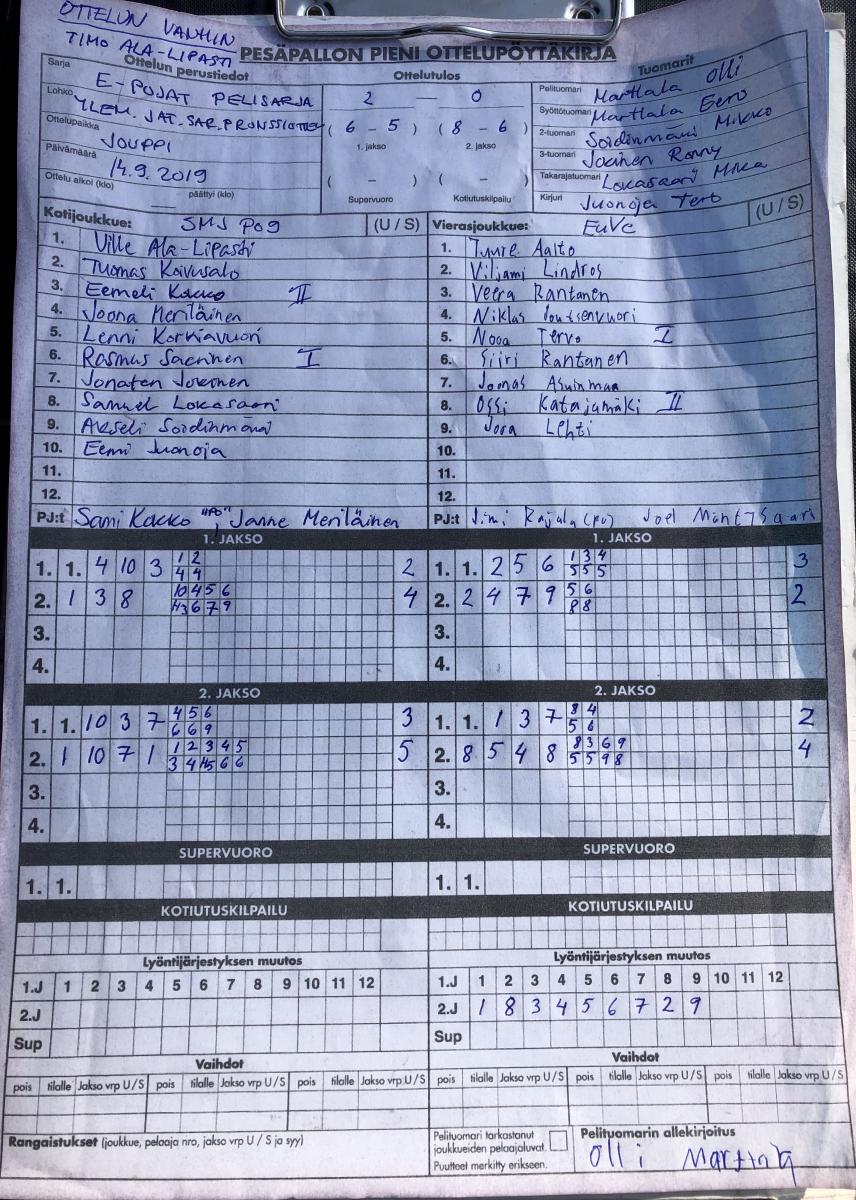 OTTELUN VANHIN
TIMO ALA-LIPASTI
PESÄPALLON PIENI OTTELUPÖYTÄKIRJA
Ottelun perustiedot
Sarja E-POJAT PELISARJA
Lohko YLEM. JAT. SAR. PRONSSIOTTELU
Ottelupaikka JOUPPI
Päivämäärä 14.9.2019
Ottelu alkoi (klo) päättyi (klo)
Ottelutulos
2 — 0
( 6 - 5 ) ( 8 - 6 )
1. jakso 2. jakso
( - ) ( - )
Supervuoro Kotiutuskilpailu
Tuomarit
Pelituomari Marttala Olli
Syöttötuomari Marttala Eero
2-tuomari Soidinmäki Mikko
3-tuomari Jokinen Ronny
Takarajatuomari Lokasaari Mika
Kirjuri Juonoja Tero
Kotijoukkue: SMJ P09 (U / S)
1. Ville Ala-Lipasti
2. Tuomas Koivusalo
3. Eemeli Kacko II
4. Joona Meriläinen
5. Lenni Korkiavuori
6. Rasmus Saarinen I
7. Jonaten Jokinen
8. Samuel Lokasaari
9. Akseli Soidinmäki
10. Eemi Juonoja
11.
12.
PJ:t Sami Kacko "HPO", Janne Meriläinen
Vierasjoukkue: EuVe (U / S)
1. Tuure Aalto
2. Viljami Lindros
3. Veera Rantanen
4. Niklas Joutsenvuori
5. Nooa Tervo I
6. Siiri Rantanen
7. Joonas Asuinmaa
8. Ossi Katajamäki II
9. Jora Lehti
10.
11.
12.
PJ:t Jimi Rajala (PV) Joel Mäntysaari
1. JAKSO
1. 1. 4 10 3 1 2 2
4 4
2. 1 3 8 10 4 5 6 4
3 6 7 9
3.
4.
1. JAKSO
1. 1. 2 5 6 1 3 4 3
5 5 5
2. 2 4 7 9 5 6 2
8 8
3.
4.
2. JAKSO
1. 1. 10 3 7 4 5 6 3
6 6 9
2. 1 10 7 1 1 2 3 4 5 5
3 4 5 6 6
3.
4.
2. JAKSO
1. 1. 1 3 7 8 4 2
5 6
2. 8 5 4 8 8 3 6 9 4
5 5 9 8
3.
4.
SUPERVUORO
1. 1.
SUPERVUORO
1. 1.
KOTIUTUSKILPAILU
KOTIUTUSKILPAILU
Lyöntijärjestyksen muutos
1.J 1 2 3 4 5 6 7 8 9 10 11 12
2.J
Sup
Lyöntijärjestyksen muutos
1.J 1 2 3 4 5 6 7 8 9 10 11 12
2.J 1 8 3 4 5 6 7 2 9
Sup
Vaihdot
pois tilalle Jakso vrp U / S pois tilalle Jakso vrp U / S pois tilalle Jakso vrp U / S
Vaihdot
pois tilalle Jakso vrp U / S pois tilalle Jakso vrp U / S pois tilalle Jakso vrp U / S
Rangaistukset (joukkue, pelaaja nro, jakso vrp U / S ja syy)
Pelituomari tarkastanut
joukkueiden pelaajaluvat.
Puutteet merkitty erikseen.
Pelituomarin allekirjoitus
Olli Marttala